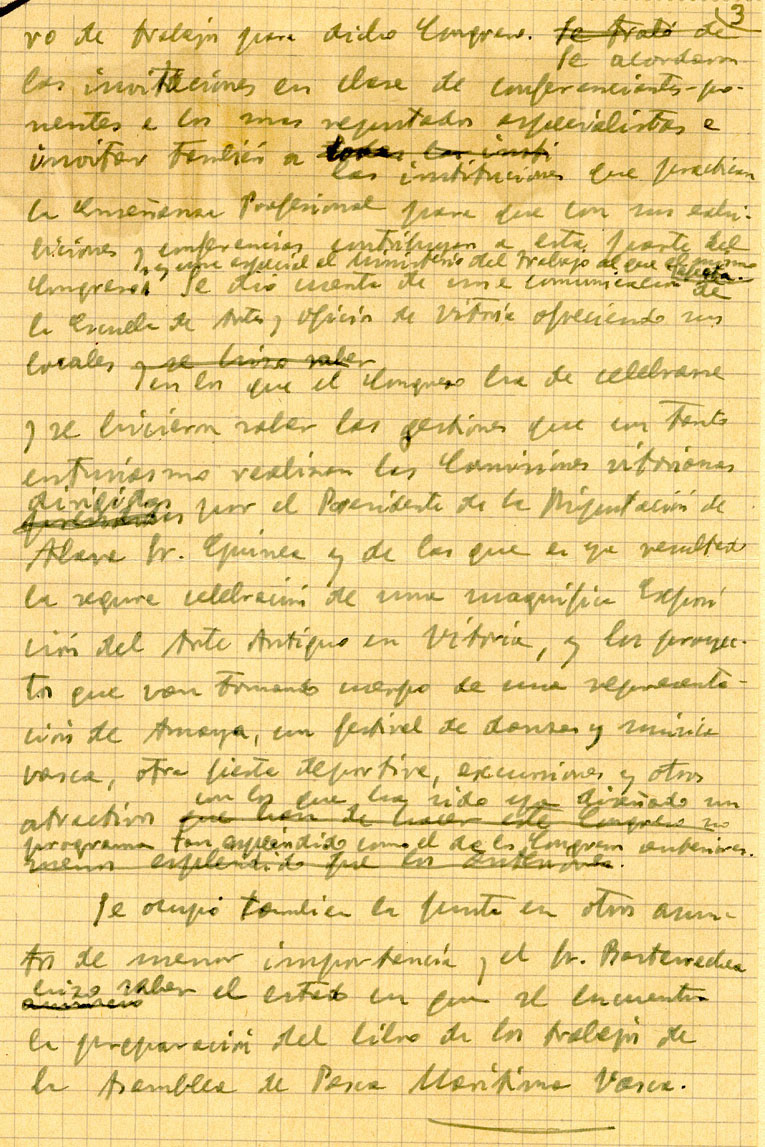 3
ro de trabajo para dicho Congreso. Se trató de
Se acordaron
las invitaciones en clase de conferenciantes-po-
nentes a los mas reputados especialistas e
invitar también a todas las insti
las instituciones que practican
la Enseñanza Profesional para que con sus exhi-
biciones y conferencias contribuyan a esta parte del
y, en especial al Ministerio del Trabajo al que el mismo
Congreso. Se dió cuenta de una comunicación de
la Escuela de Artes y Oficios de Vitoria ofreciendo sus
locales y se hizo saber
en los que el Congreso ha de celebrarse
y se hicieron saber las gestiones que con tanto
entusiasmo realizan las Comisiones vitorianas
dirigidas
por el Presidente de la Diputación de
Alava Sr. Guinea y de las que es ya resultado
la segura celebración de una magnífica Exposi
ción del Arte Antiguo en Vitoria, y los proyec-
tos que van tomando cuerpo de una representa-
ción de Amaya, un festival de danzas y música
vasca, otra fiesta deportiva, excursiones y otros
con los que ha sido ya diseñado un
atractivos que han de hacer este Congreso no
programa tan espléndido como el de los Congresos anteriores.
menos esplendido que los anteriores.
Se ocupó también la Junta en otros asun-
tos de menor importancia y el Sr. Basterrechea
hizo saber
anunció el estado en que se encuentra
la preparación del libro de los trabajos de
la Asamblea de Pesca Marítima Vasca.